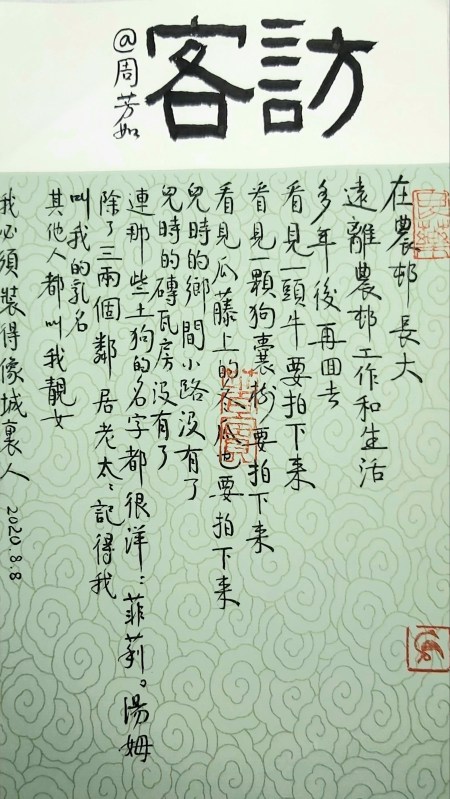 訪客
@周芳如
在農邨長大
遠離農邨工作和生活
多年後再回去
看見一頭牛要拍下来
看見一顆狗囊樹要拍下来
看見瓜藤上的瓜也要拍下来
兒時的鄉間小路没有了
兒時的磚瓦房没有了
連那些土狗的名字都很洋：菲莉。湯姆
除了三兩個鄰居老太：記得我
叫我的乳名
其他人都叫我靚女
我必須裝得像城裏人 2020.8.8